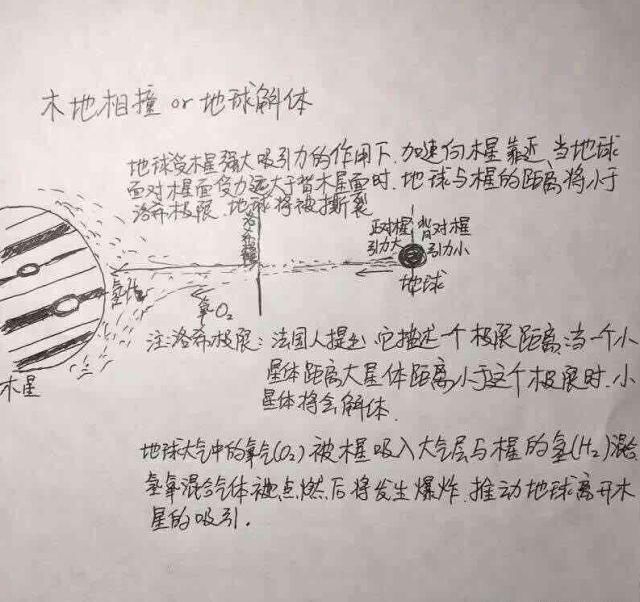 木地相撞 or 地球解体
地球受木星强大吸引力的作用下.加速向木星靠近、当地球
面对木星面受力远大于背木星面时.地球与木星的距离将小于
洛希极限.地球将被撕裂
洛希极限
正对木星
引力大
背对木星
引力小
地球
氢H₂
氧O₂
木星
注:洛希极限:法国人提出.它描述一个极限距离.当一个小
星体距离大星体距离小于这个极限时.小
星体将会解体.
地球大气中的氧气(O₂)被木星吸入大气层与木星的氢(H₂)混合
氢氧混合气体被点燃后将发生爆炸.推动地球离开木
星的吸引.